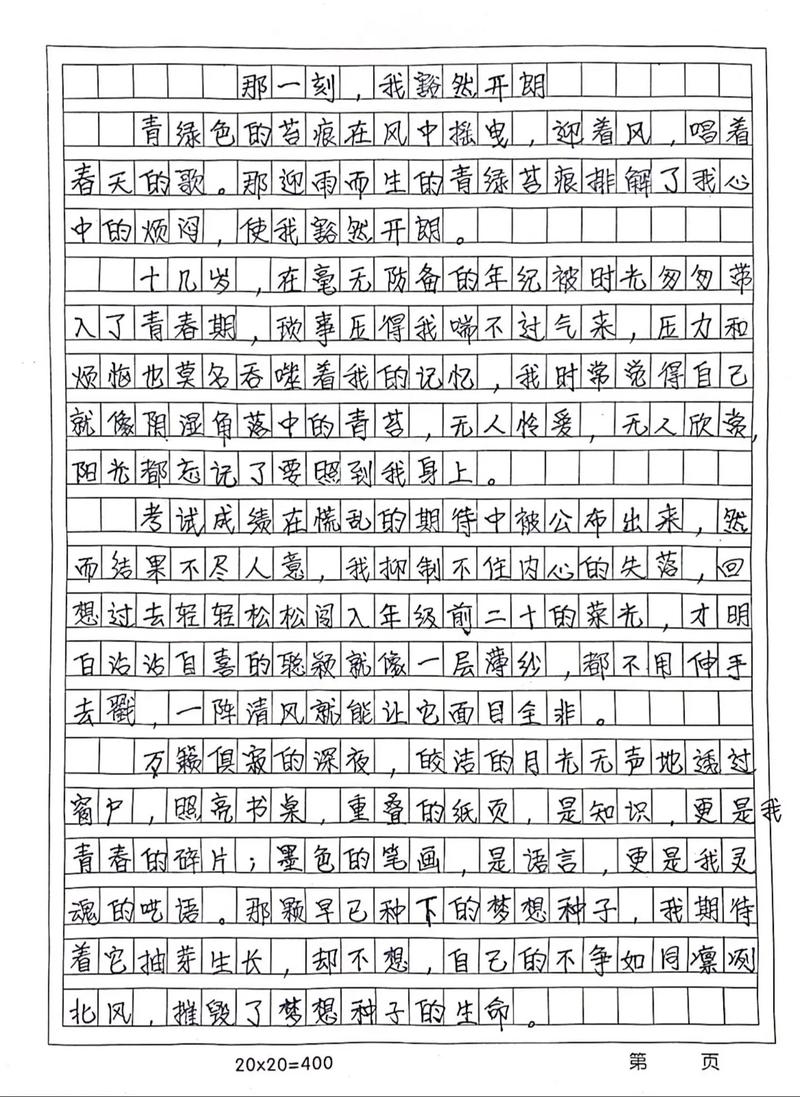 那一刻，我豁然开朗
青绿色的苔痕在风中摇曳，迎着风，唱着
春天的歌。那迎雨而生的青绿苔痕排解了我心
中的烦闷，使我豁然开朗。
十几岁，在毫无防备的年纪被时光匆匆带
入了青春期，琐事压得我喘不过气来，压力和
烦恼也莫名吞噬着我的记忆，我时常觉得自己
就像阴湿角落中的青苔，无人怜爱，无人欣赏，
阳光都忘记了要照到我身上。
考试成绩在慌乱的期待中被公布出来，然
而结果不尽人意，我抑制不住内心的失落，回
想过去轻轻松松闯入年级前二十的荣光，才明
白沾沾自喜的聪颖就像一层薄纱，都不用伸手
去戳，一阵清风就能让它面目全非。
万籁俱寂的深夜，皎洁的月光无声地透过
窗户，照亮书桌，重叠的纸页，是知识，更是我
青春的碎片；墨色的笔画，是语言，更是我灵
魂的呓语。那颗早已种下的梦想种子，我期待
着它抽芽生长，却不想，自己的不争如同凛冽
北风，摧毁了梦想种子的生命。
20×20=400 第 页